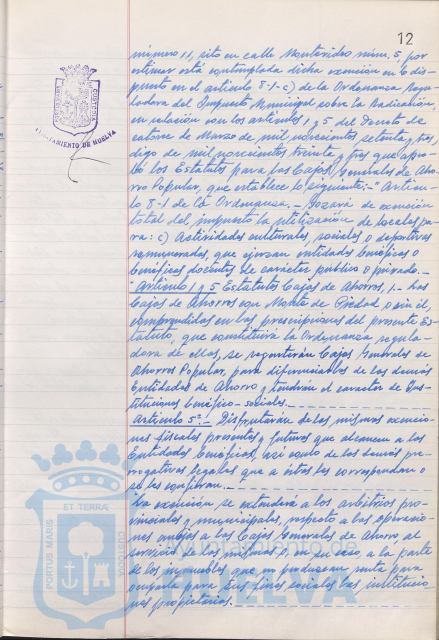 12
número 11, sito en calle Montevideo núm. 5, por
estimar está contemplada dicha exención en lo dis-
puesto en el artículo 8-1-c) de la Ordenanza Regu-
ladora del Impuesto Municipal sobre la Radicación
en relación con los artículos 1 y 5 del Decreto de
catorce de Marzo de mil novecientos setenta y tres,
digo de mil novecientos treinta y tres que apro-
bó los Estatutos para las Cajas Generales de Aho-
rro Popular, que establece lo siguiente:-" Artícu-
lo 8-1 de la Ordenanza.- Gozará de exención
total del impuesto la utilización de locales pa-
ra: c) Actividades culturales, sociales o deportivas
remuneradas, que ejerzan entidades benéficas o
benéficas docentes de carácter público o privado.-
"Artículo 1 y 5 Estatutos Cajas de Ahorros, 1.- Las
Cajas de Ahorros con Monte de Piedad o sin él,
comprendidas en las prescripciones del presente Es-
tatuto, que constituirá la Ordenanza regula-
dora de ellas, se reputarán Cajas Generales de
Ahorros Popular, para diferenciarlas de las demás
Entidades de Ahorro y tendrán el carácter de Ins-
tituciones benéfico-sociales.
Artículo 5º.- Disfrutarán de las mismas exencio-
nes fiscales presentes y futuras que alcancen a las
Entidades benéficas, así como de las demás pre-
rrogativas legales que a éstas les correspondan o
se les confieran.
La exención se extenderá a los arbitrios pro-
vinciales y municipales, respecto a las operacio-
nes anejas a las Cajas Generales de Ahorro al
servicio de las mismas o, en su caso, a la parte
de los inmuebles que no produzcan renta por
ocuparla para sus fines sociales las institucio-
nes propietarias.
AYUNTAMIENTO DE HUELVA
PORTUS MARIS ET TERRAE CUSTODIA
HUELVA